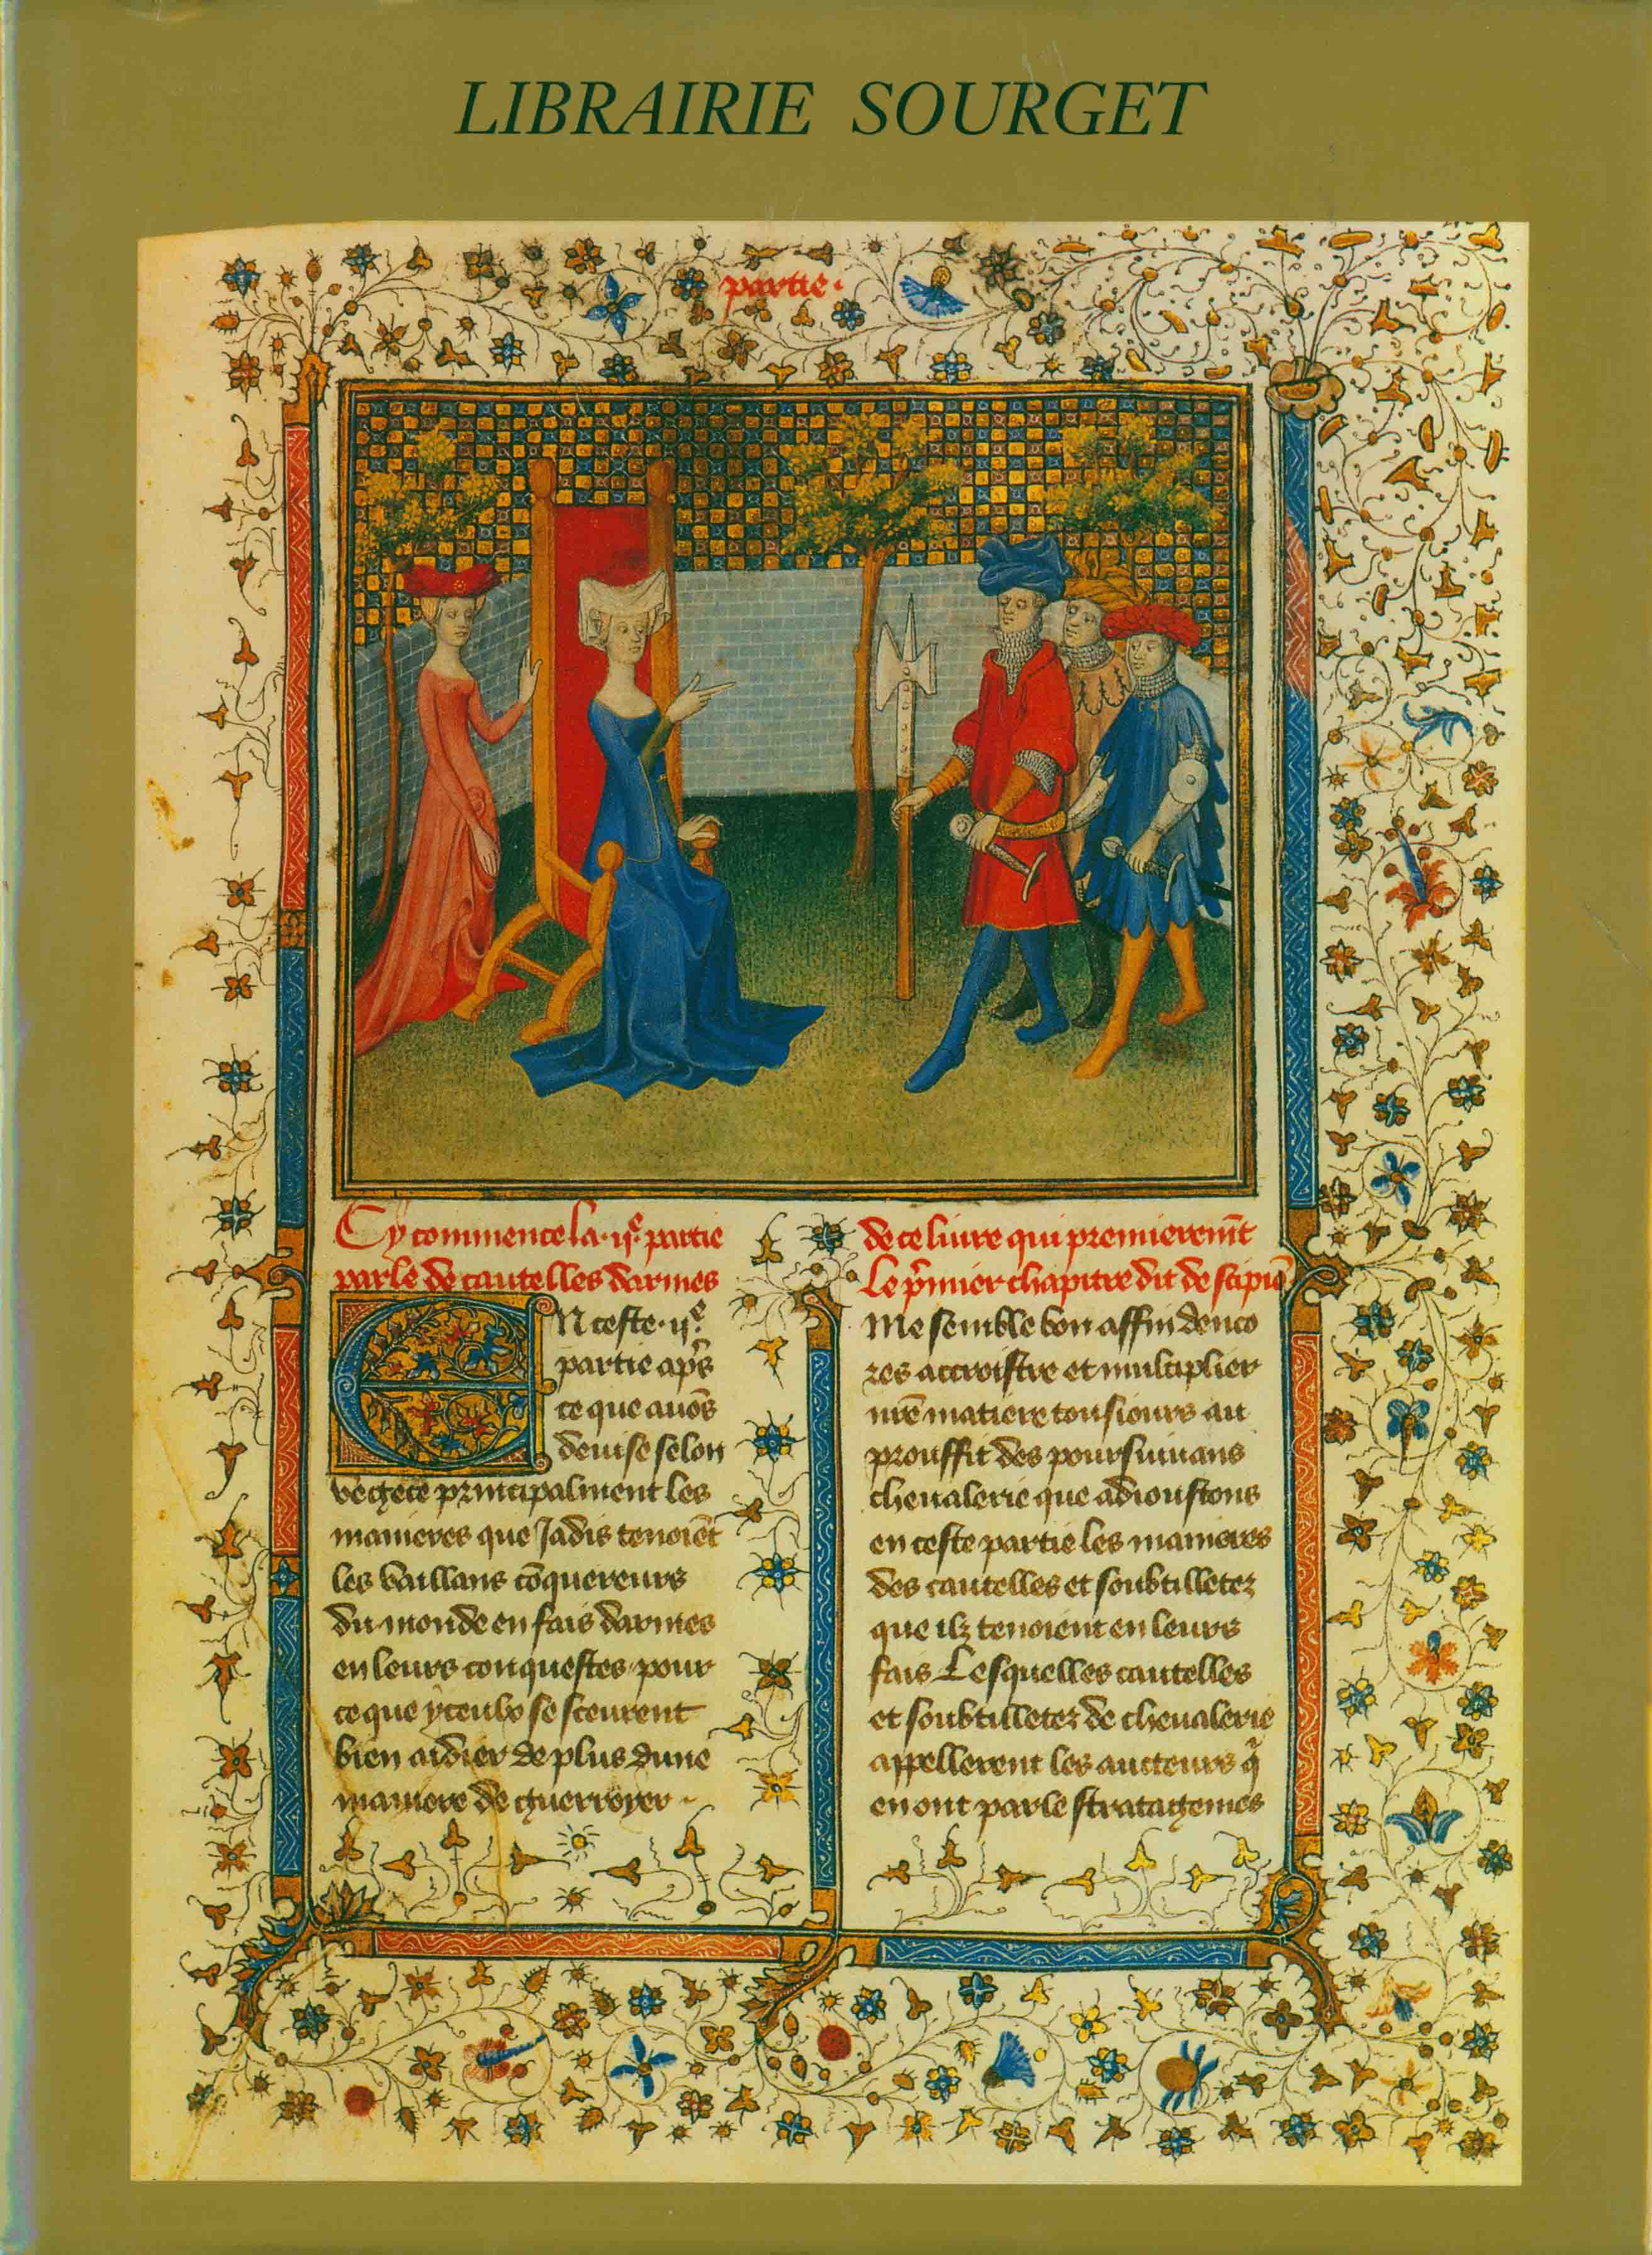 LIBRAIRIE SOURGET
partie.
Cy commence la .ije. partie
parle de cautelles darmes
EN ceste .ije.
partie apřs
ce que auõs
deuise selon
vegece principalment les
manieres que Jadis tenoiẽt
les vaillans cõquereurs
du monde en fais darmes
en leurs conquestes pour
ce que yceulx se sceurent
bien aidier de plus dune
maniere de guerroyer
de ce liure qui premieremt̃
Le p̃mier chapitre dit de scipiõ
Me semble bon affin denco
res accroistre et multiplier
nr̃e matiere tousiours au
prouffit des poursuiuans
cheualerie que adioustons
en ceste partie les manieres
des cautelles et soubtilletez
que ilz tenoient en leurs
fais Lesquelles cautelles
et soubtilletez de cheualerie
appellerent les aucteurs q̃
en ont parle stratagemes